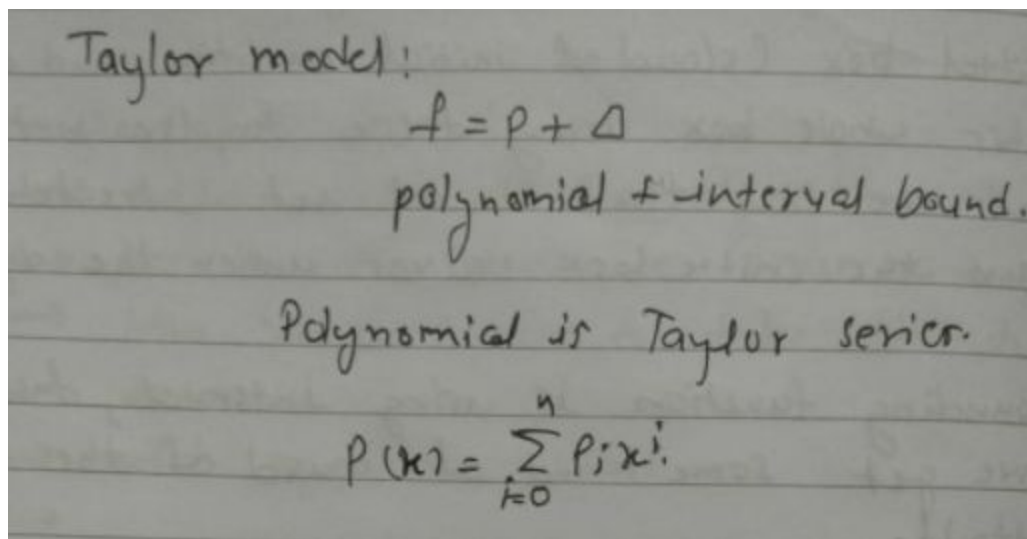 Taylor model:
f = P + Δ
polynomial + interval bound.
Polynomial is Taylor series.
n
P(x) = Σ Pᵢxⁱ.
i=0